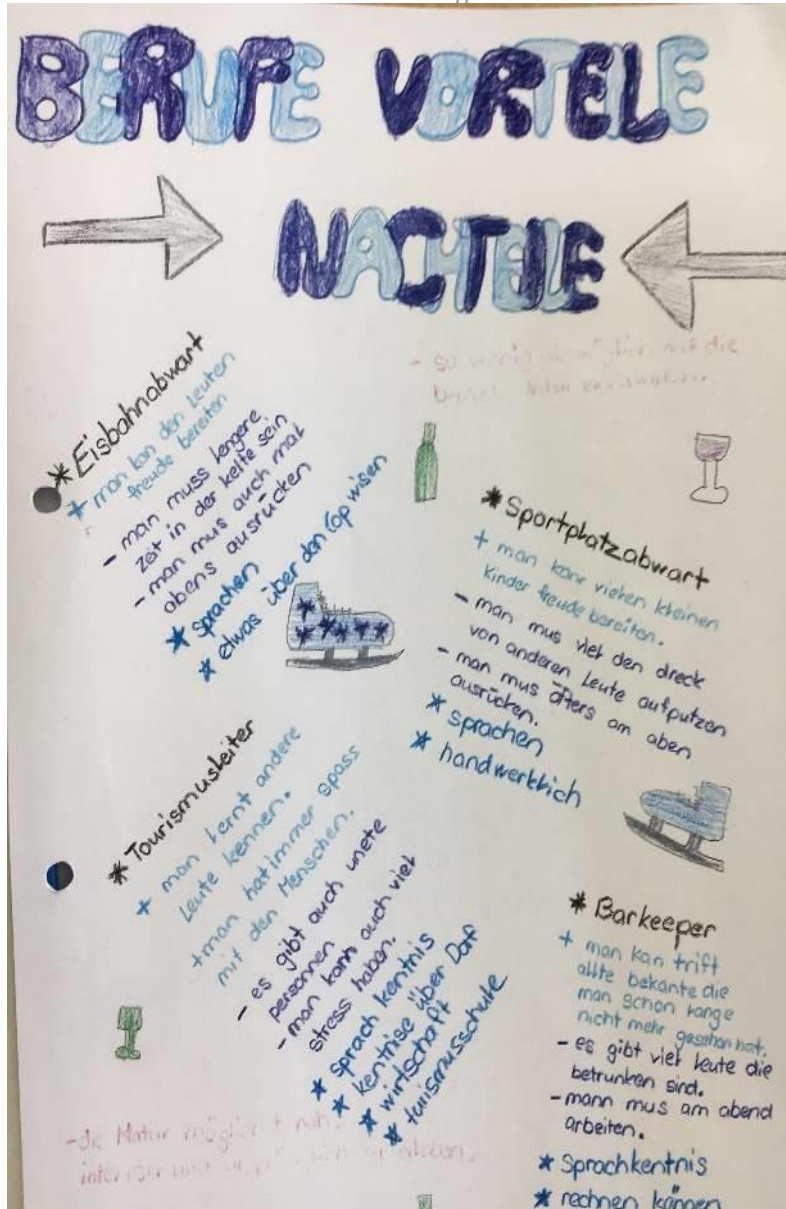 BERUFE VORTEILE
NACHTEILE
* Eisbahnabwart
+ man kan den Leuten
freude bereiten
- man muss lengere
zeit in der kelte sein
- man mus auch mal
abens ausrücken
* sprachen
* etwas über den Cap wisen
- so wenig die
* Sportplatzabwart
+ man kann vielen kleinen
kinder freude bereiten.
- man mus viel den dreck
von anderen Leute aufputzen
- man mus öfters am aben
ausrücken.
* sprachen
* handwerklich
* Tourismusleiter
+ man lernt andere
Leute kennen.
+ man hat immer spass
mit den Menschen.
- es gibt auch unete
personnen
- man kann auch viel
stress haben.
* sprach kentnis
* kentnise über Dorf
* wirtschaft
* turismusschule
* Barkeeper
+ man kan trift
allte bekante die
man schon lange
nicht mehr gesehen hat.
- es gibt viel leute die
betrunken sind.
- mann mus am abend
arbeiten.
* Sprachkentnis
* rechnen können
- die Natur möglichst nah,
intensiv und erleben.